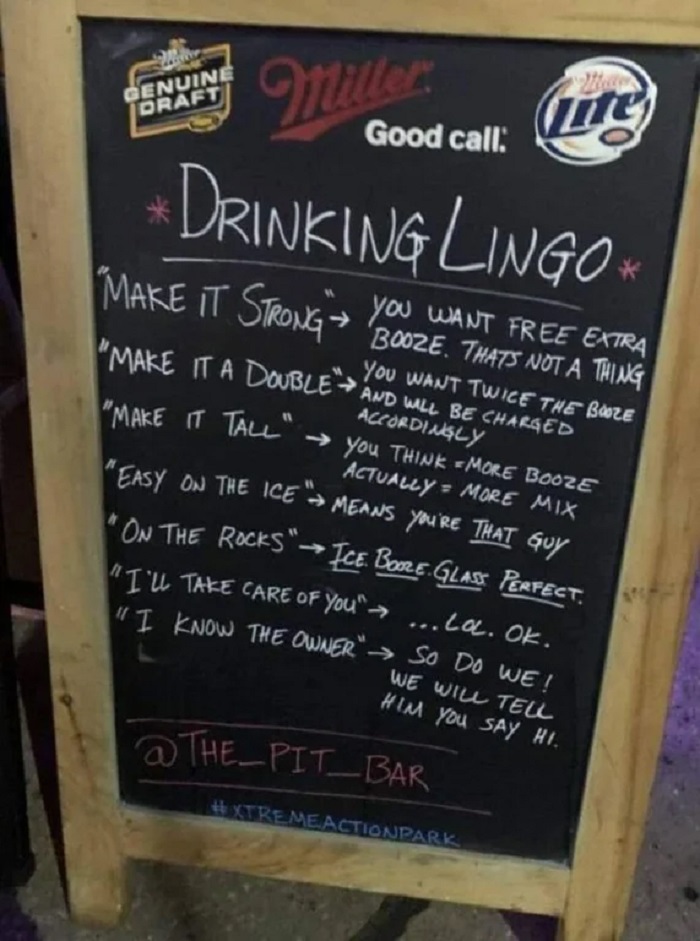 Miller
GENUINE
DRAFT
Miller
Good call.
Miller
Lite
* DRINKING LINGO *
"MAKE IT STRONG" → YOU WANT FREE EXTRA
BOOZE. THATS NOT A THING
"MAKE IT A DOUBLE" → YOU WANT TWICE THE BOOZE
AND WILL BE CHARGED
ACCORDINGLY
"MAKE IT TALL" → YOU THINK = MORE BOOZE
ACTUALLY = MORE MIX
"EASY ON THE ICE" → MEANS YOU'RE THAT GUY
"ON THE ROCKS" → ICE. BOOZE. GLASS PERFECT.
"I'LL TAKE CARE OF YOU" → ... LOL. OK.
"I KNOW THE OWNER" → SO DO WE!
WE WILL TELL
HIM YOU SAY HI.
@THE_PIT_BAR
#XTREMEACTIONPARK